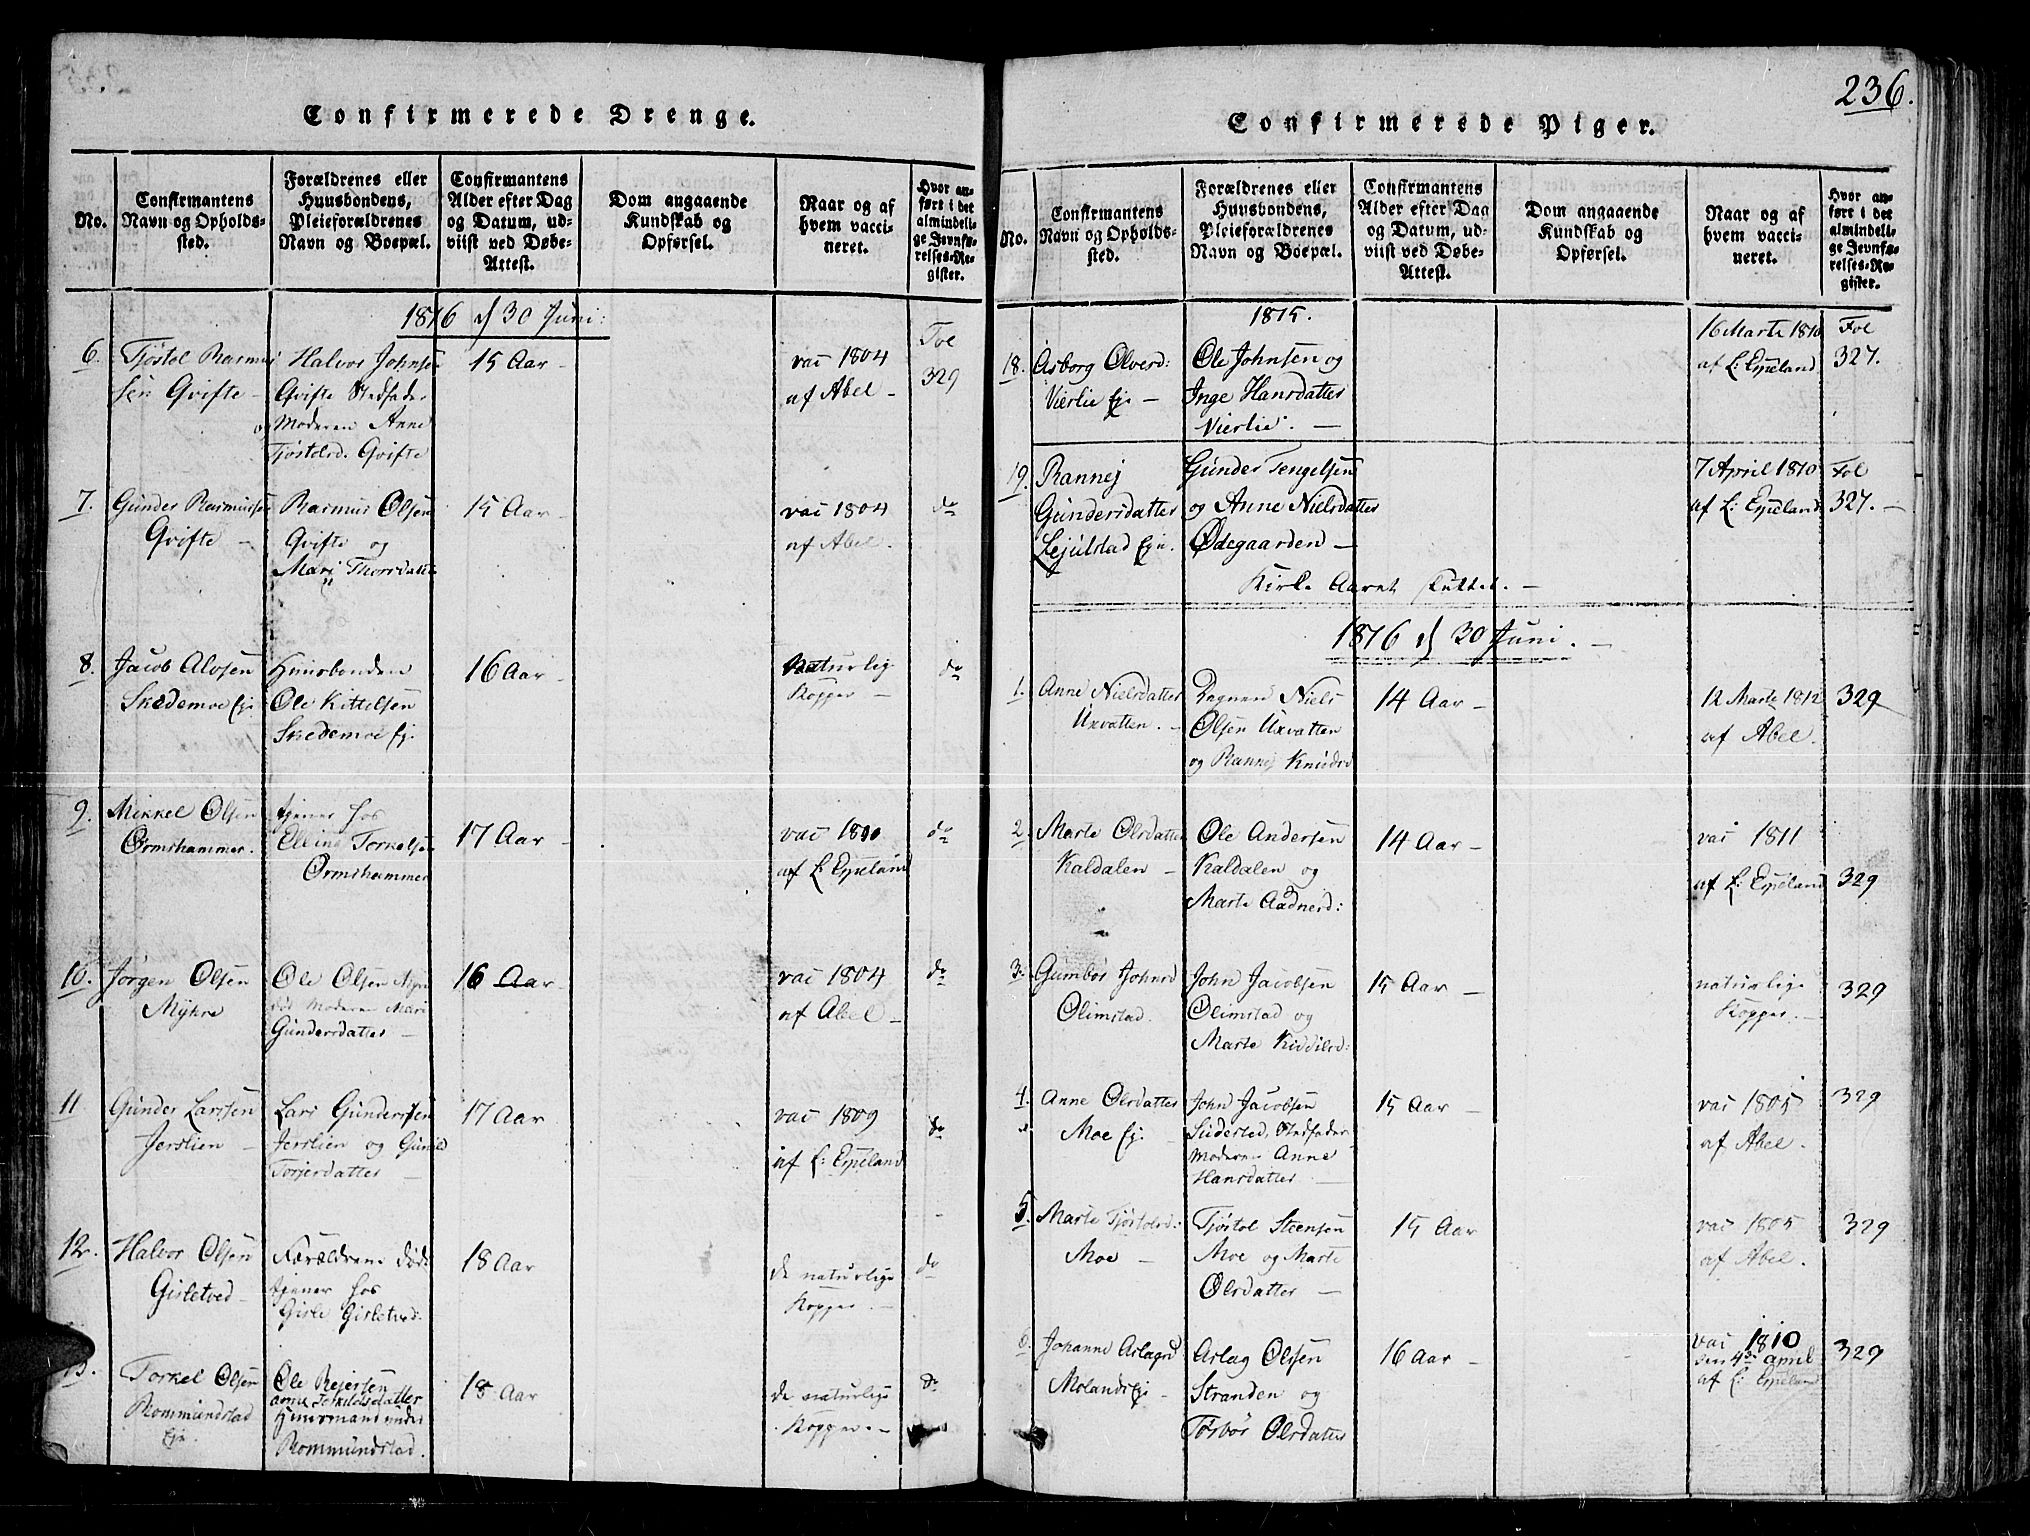 Confirmerede Drenge.
No.
Confirmantens
Navn og Opholds-
sted.
Forældrenes eller
Huusbondens,
Pleieforældrenes
Navn og Boepæl.
Confirmantens
Alder efter Dag
og Datum, ud-
viist ved Døbe-
Attest.
Dom angaaende
Kundskab og
Opførsel.
Naar og af
hvem vacci-
neret.
Hvor an-
ført i det
almindeli-
ge Jevnfø-
relses-Re-
gister.
1816 d 30 Juni:
6. Tjøstol Rasmus
sen Qvifte -
Halvor Johnsen
Qvifte Stedfader
og Moderen Anne
Tjøstolsd. Qvifte
15 Aar -
vac 1804
af Abel -
Fol
329
7. Gunder Rasmusen
Qvifte -
Rasmus Olsen
Qvifte og
Mari Thorsdatter
15 Aar -
vac 1804
af Abel.
do
8. Jacob Alvsen
Skedemoe Eje
Huusbonden
Ole Kittelsen
Skedemoe Ej.
16 Aar -
Naturlig
Kopper -
do
9. Mikkel Olsen
Ormshammer.
tjener hos
Elling Torkelsen
Ormshammer
17 Aar -
vac 1810
af L: Eppeland
do
10. Jørgen Olsen
Myhre
Ole Olsen
død Moderen Mari
Gundersdatter -
16 Aar -
vac 1804
af Abel -
do
11 Gunder Larssen
Jerslien -
Lars Gundersen
Jerslien og Gunild
Torjerdatter -
17 Aar
vac 1809
af L: Eppeland
do
12. Halvor Olsen
Gisletved -
Forældrene døde
tjener hos
Gisle Gisletved:
18 Aar
de naturlige
Kopper -
do
13. Torkel Olsen
Rommundstad
Eje.
Ole Rejersen
Anne Torkildsdatter
Huusmand under
Rommundstad.
18 Aar
de naturlige
Kopper -
do
236.
Confirmerede Piger.
No.
Confirmantens
Navn og Opholds-
sted.
Forældrenes eller
Huusbondens,
Pleieforældrenes
Navn og Boepæl.
Confirmantens
Alder efter Dag
og Datum, ud-
viist ved Døbe-
Attest.
Dom angaaende
Kundskab og
Opførsel.
Naar og af
hvem vacci-
neret.
Hvor an-
ført i det
almindeli-
ge Jevnfø-
relses-Re-
gister.
1815.
18. Asborg Olverd:
Vierlie Eje -
Ole Johnsen og
Inge Hansdatter
Vierlie. -
16 Marts 1810
af L: Eppeland
Fol
327.
19. Rannej
Gundersdatter
Lejulstad Eje.
Gunder Tengelsen
og Anne Nielsdatter
Ødegaarden -
7 April 1810
af L: Eppeland
Fol
327. -
Kirke Aaret sluttet. -
1816 d 30 Juni. -
1. Anne Nielsdatter
Uxvatten. -
Niels
Olsen Uxvatten
og Rannej Knudsd
14 Aar -
12 Marts 1812
af Abel.
329
2. Marte Olsdatter
Kaldalen -
Ole Andersen
Kaldalen og
Marte Aadnerd:
14 Aar -
vac 1811
af L: Eppeland
329
3. Gumbor Johnsd
Olimstad.
John Jacobsen
Olimstad og
Marte Kiddilsd:
15 Aar -
naturlige
Kopper. -
329
4. Anne Olsdatter
Moe Ej. -
John Jacobsen
Suderstad, Stedfader
Moderen Anne
Hansdatter -
15 Aar -
vac 1805
af Abel.
329
5. Marte Tjøstolsd:
Moe -
Tjøstol Steensen
Moe og Marte
Olsdatter -
15 Aar
vac 1805
af Abel.
329
6. Johanne Aslagsd
Molands Eje -
Aslag Olsen
Stranden og
Tosbor Olsdatter
16 Aar -
vac 1810
den 4de April
af L: Eppeland
329